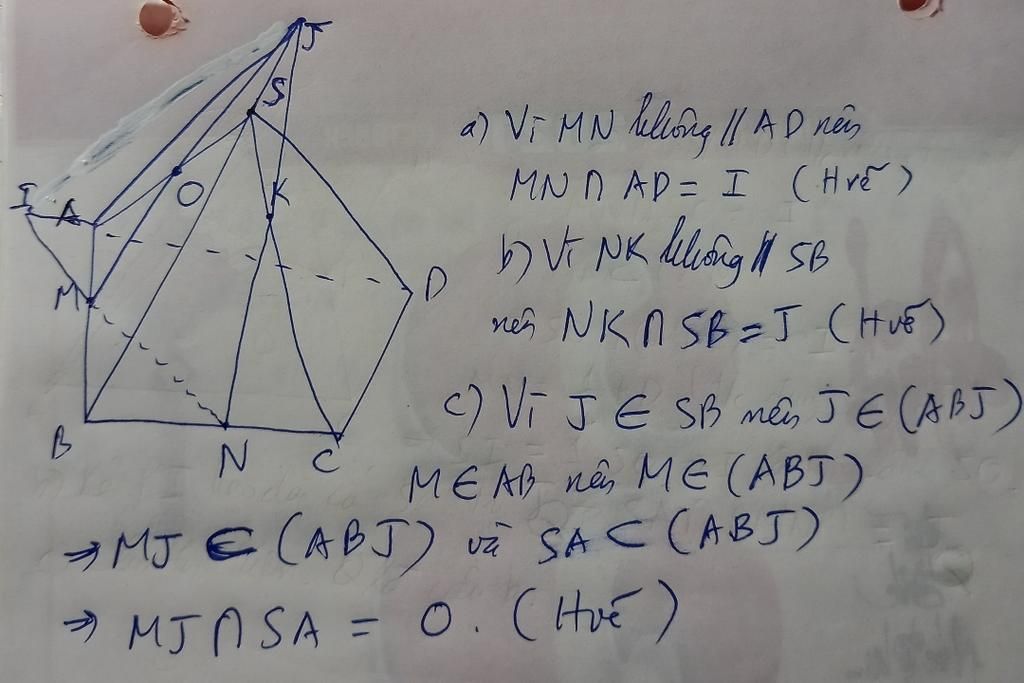 J
S
O
I
A
K
M
D
B
N
C
a) Vì MN không // AD nên
MN ∩ AD = I (Huế)
b) Vì NK không // SB
nên NK ∩ SB = J (Huế)
c) Vì J ∈ SB nên J ∈ (ABJ)
M ∈ AB nên M ∈ (ABJ)
⇒ MJ ⊂ (ABJ) và SA ⊂ (ABJ)
⇒ MJ ∩ SA = O. (Huế)